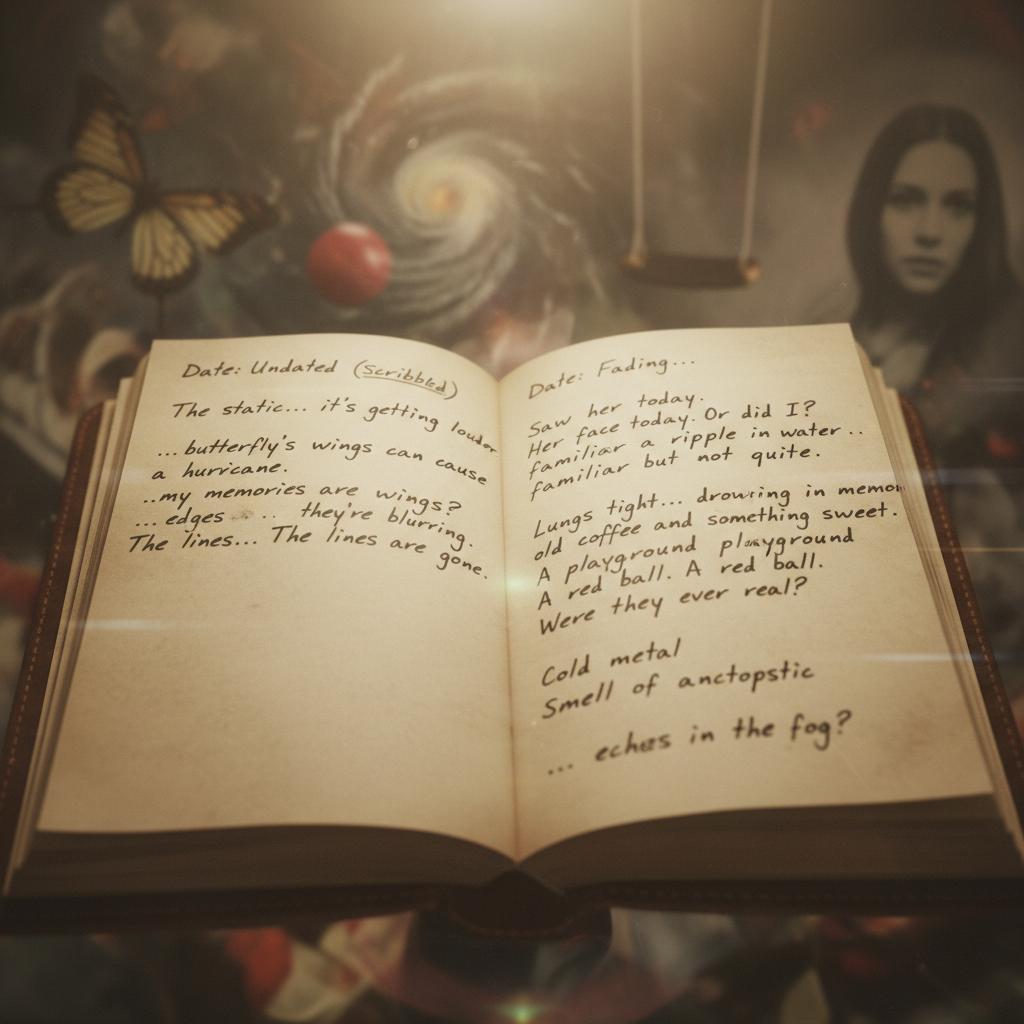 Date: Undated (Scribbled)
The static... it's getting louder
...butterfly's wings can cause
a hurricane.
..my memories are wings?
...edges .. they're blurring.
The lines... The lines are gone.
Date: Fading...
Saw her today.
Her face today. Or did I?
familiar a ripple in water..
familiar but not quite.
Lungs tight... drowning in memor
old coffee and something sweet.
A playground playground
A red ball. A red ball.
Were they ever real?
Cold metal
Smell of anctopstic
... echoes in the fog?